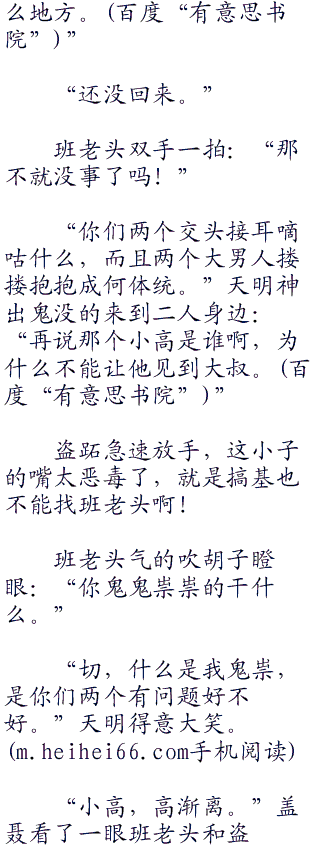 么地方。(百度“有意思书
院”)”
“还没回来。”
班老头双手一拍：“那
不就没事了吗！”
“你们两个交头接耳嘀
咕什么，而且两个大男人搂
搂抱抱成何体统。”天明神
出鬼没的来到二人身边：
“再说那个小高是谁啊，为
什么不能让他见到大叔。(百
度“有意思书院”)”
盗跖急速放手，这小子
的嘴太恶毒了，就是搞基也
不能找班老头啊！
班老头气的吹胡子瞪
眼：“你鬼鬼祟祟的干什
么。”
“切，什么是我鬼祟，
是你们两个有问题好不
好。”天明得意大笑。
(m.heihei66.com手机阅读)
“小高，高渐离。”盖
聂看了一眼班老头和盗